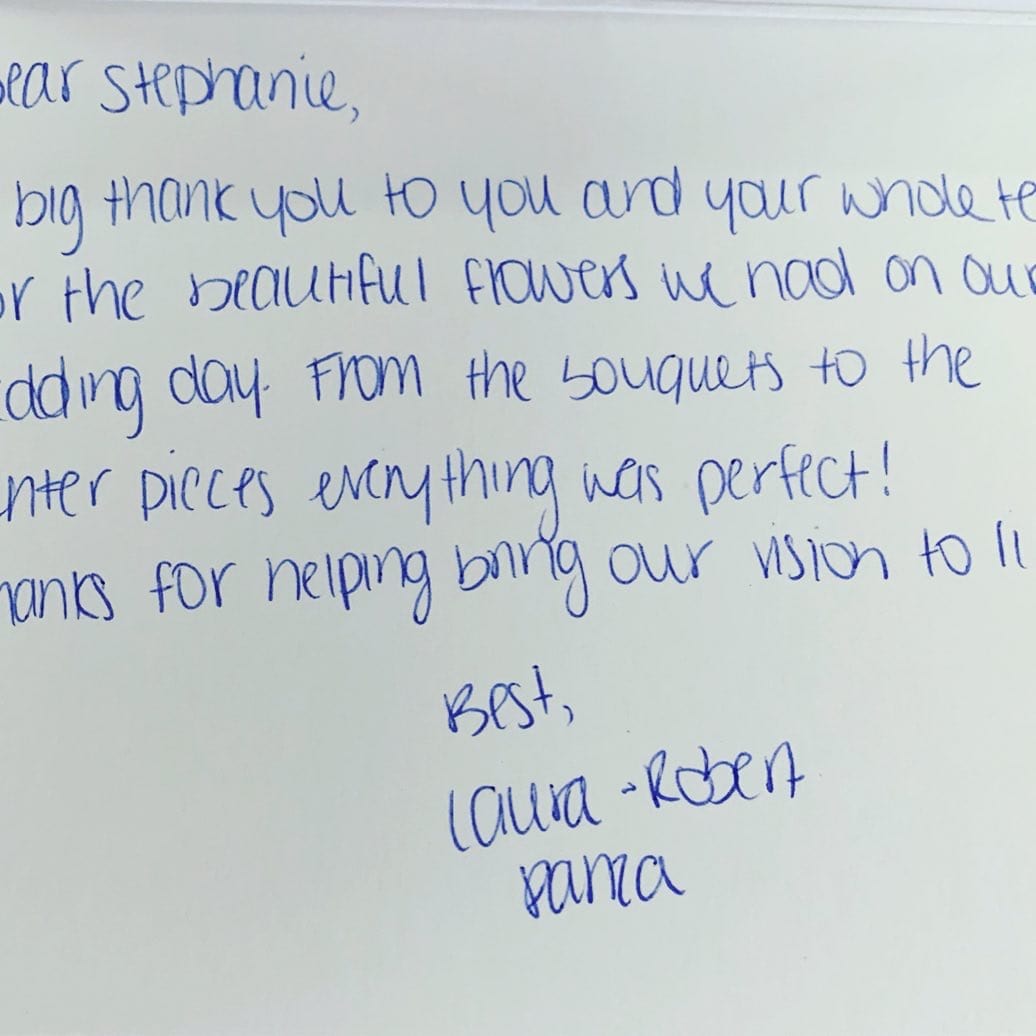 ear Stephanie,
big thank you to you and your whole te
or the beautiful flowers we had on our
dding day. From the bouquets to the
nter pieces everything was perfect!
hanks for helping bring our vision to li
Best,
Laura - Robert